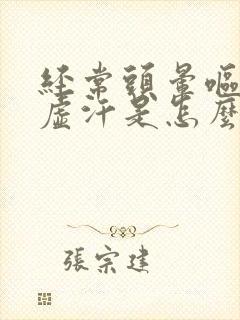 經常頭暈嘔
虛汗是怎麼
張宗建